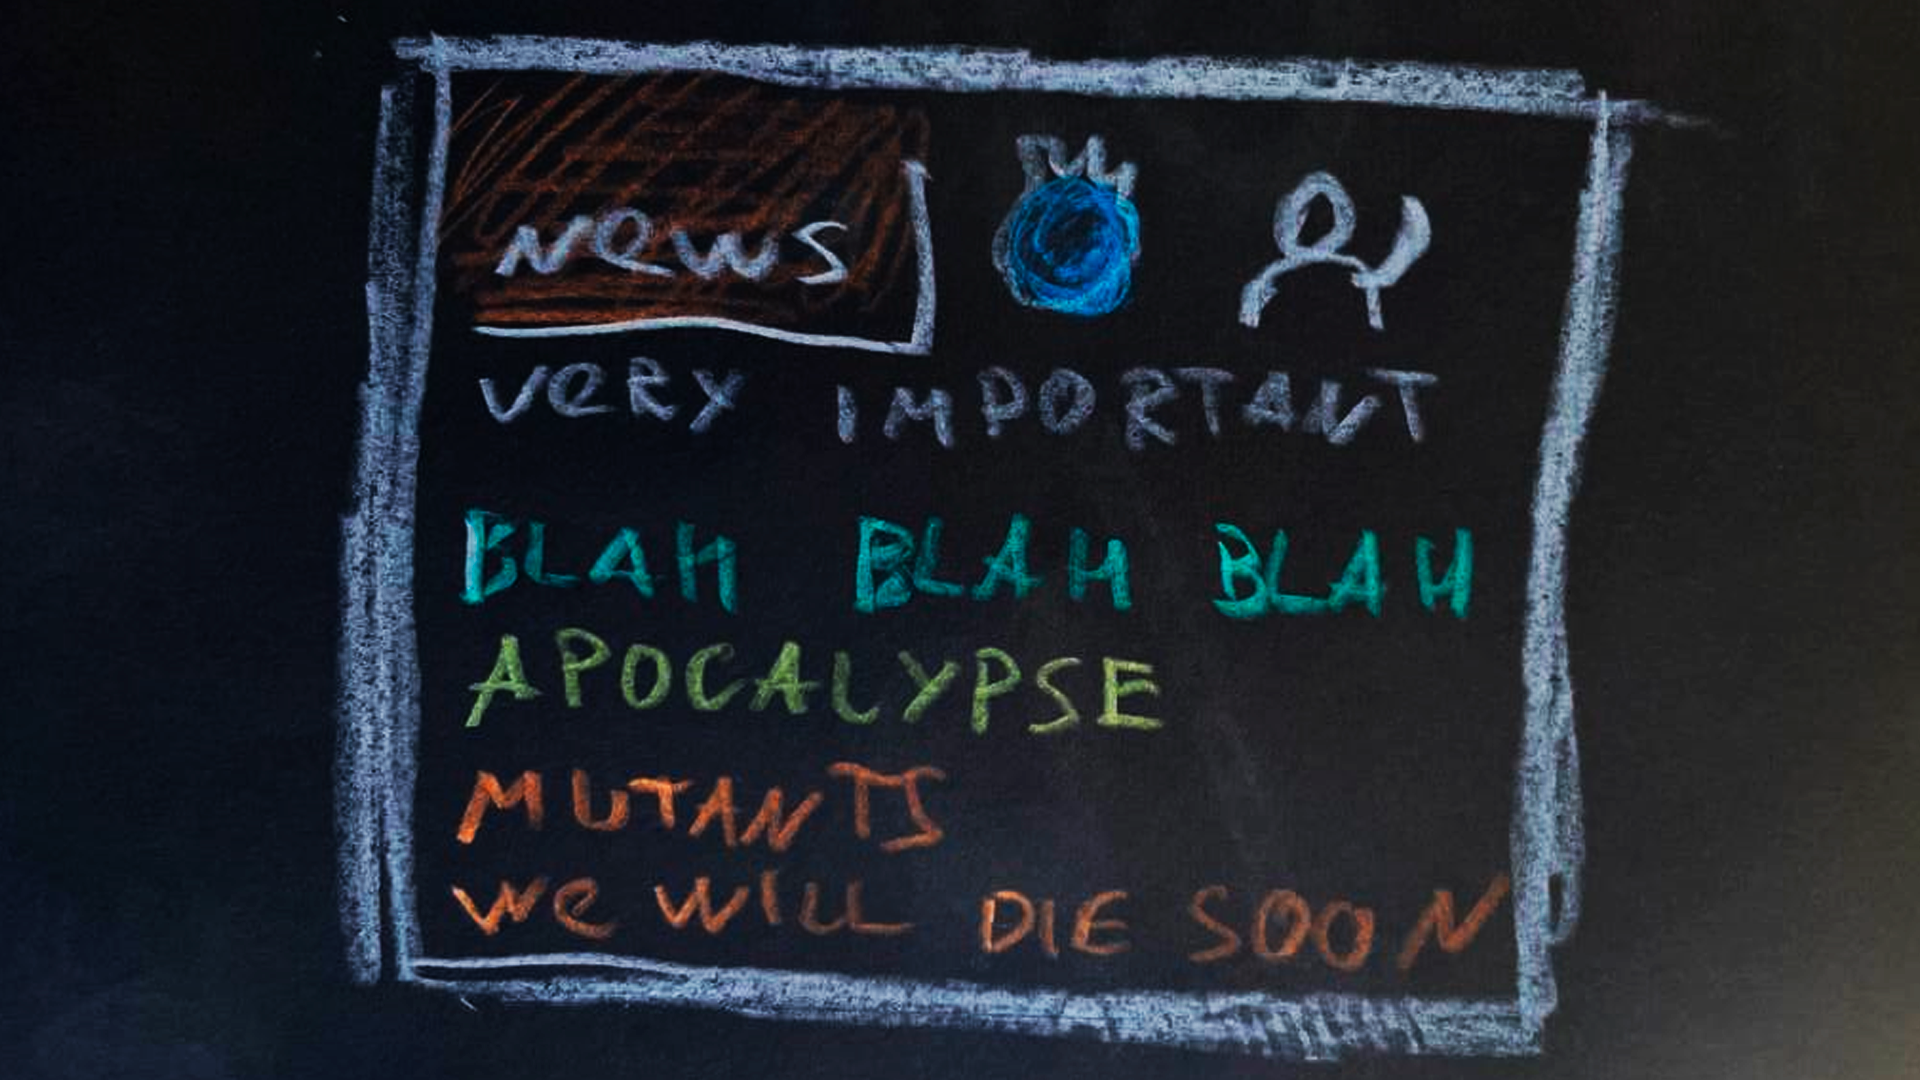 NeWS
VeRY IMPORTANT
BLAH BLAH BLAH
APOCALYPSE
MUTANTS
We WILL DIE SOON